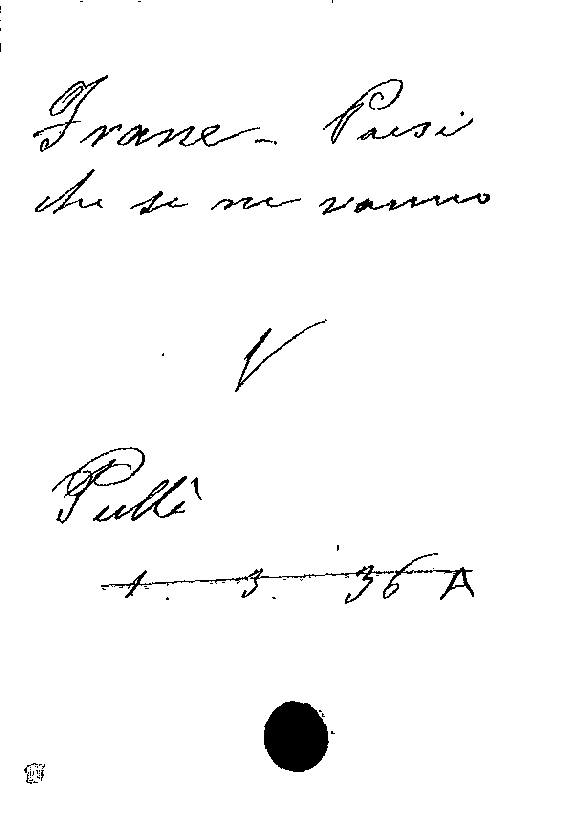 Frane - Paesi
che se ne vanno
V
Pullè
1. 3. 36 A